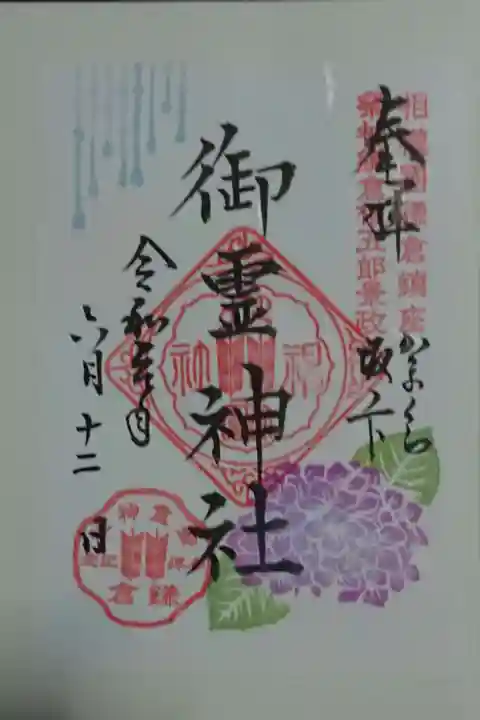 奉拝
相模国鎌倉鎮座
鎌倉権五郎景政
かまくら
坂ノ下
御霊神社
令和元年
六月十二日
鎌倉